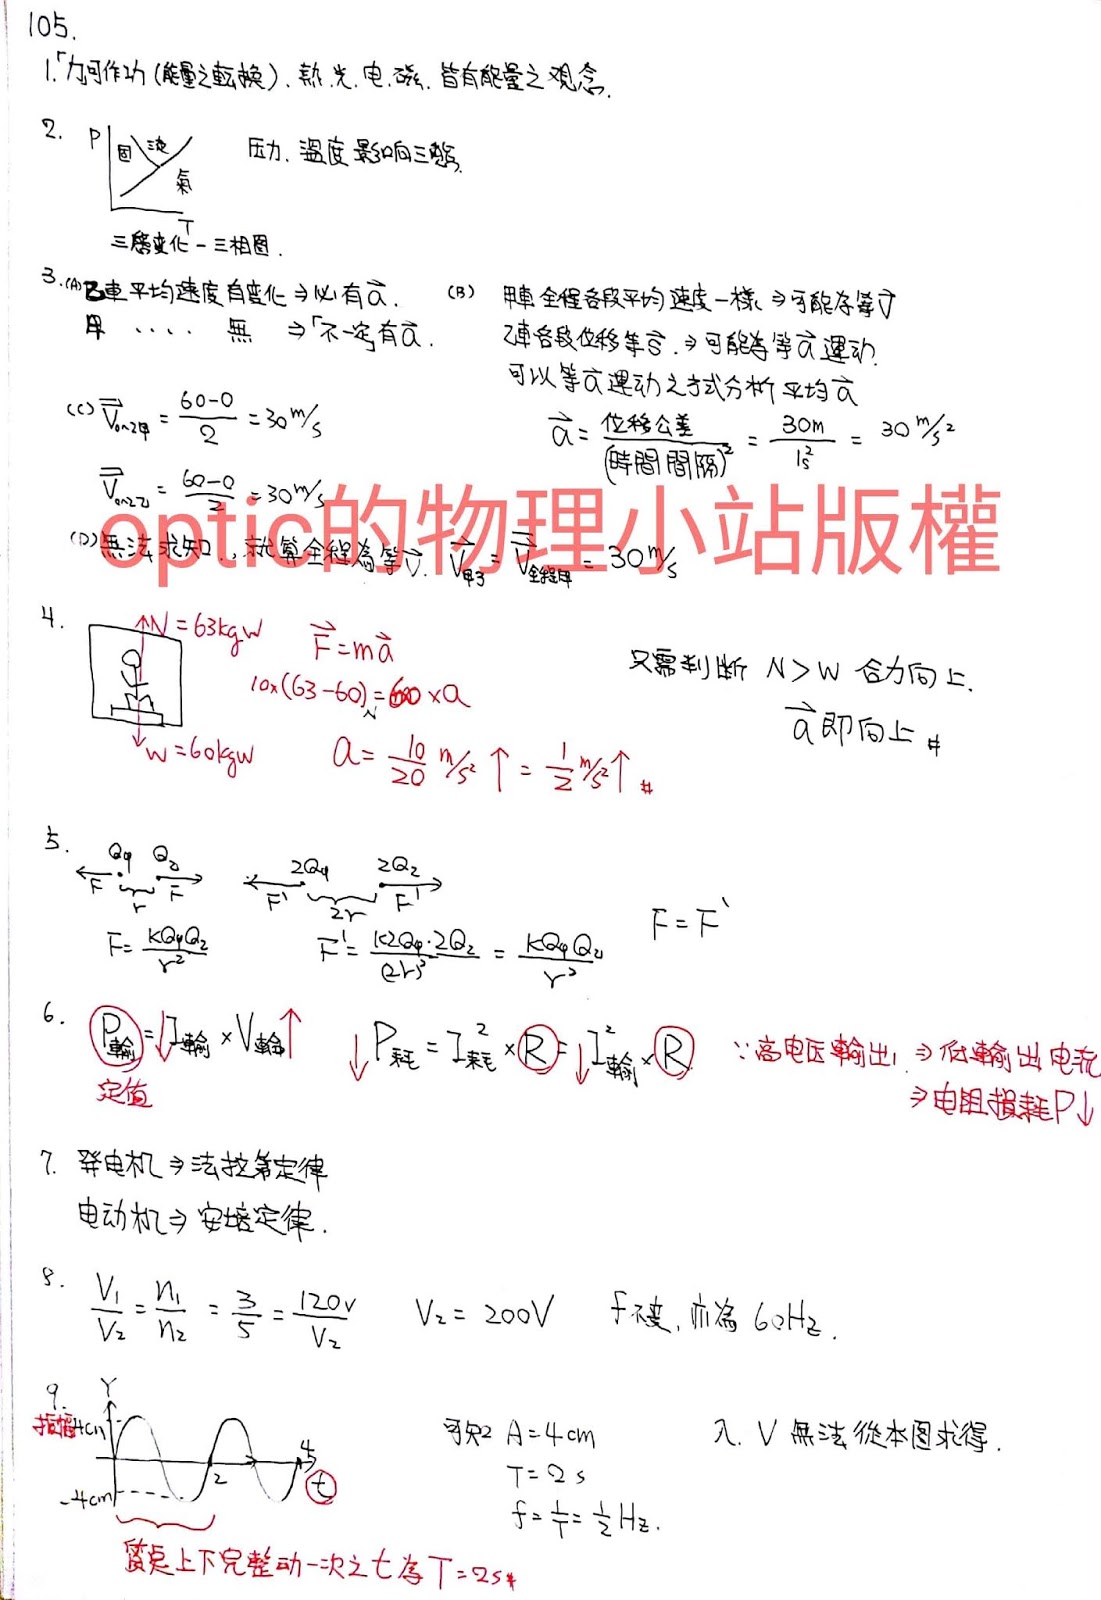 105.
1.「力可作功(能量之転換)、熱、光、电、磁、皆有能量之观念.
2. P 固 液 氣 T 压力、溫度影响三態.
三態变化-三相图.
3.(A)乙車平均速度有变化⇒必有a⃗.
甲 ‥‥ 無 ⇒「不一定」有a⃗.
(B) 甲車全程各段平均速度一樣⇒可能為等v⃗
乙車各段位移等差.⇒可能為等a⃗運动.
可以等a⃗運动之方式分析平均a⃗
a⃗ = 位移公差/(時間間隔)² = 30m/1s² = 30 m/s²
(C) V⃗0~2甲 = (60-0)/2 = 30 m/s
V⃗0~2乙 = (60-0)/2 = 30 m/s
(D)無法求知.,就算全程為等v⃗. V⃗甲3 = V⃗全程甲 = 30 m/s
optic的物理小站版權
4. N=63kgw F⃗=ma⃗
10×(63-60)N=60×a
W=60kgw a = 10/20 m/s² ↑ = 1/2 m/s² ↑ #
只需判断 N>W 合力向上.
a⃗即向上 #
5. Q1 Q2 F r F 2Q1 2Q2 F' 2r F'
F = KQ1Q2/r² F' = K2Q1·2Q2/(2r)² = KQ1Q2/r² F=F'
6. P輸=↓I輸×V輸↑ ↓P耗=I耗²×R=↓I輸²×R ∵高电压輸出,⇒低輸出电流
定值 ⇒电阻損耗P↓
7. 発电机⇒法拉第定律
电动机⇒安培定律.
8. V1/V2 = n1/n2 = 3/5 = 120V/V2 V2=200V f不变,亦為60Hz.
9. Y
振幅 4cm 2 4 t
-4cm
可知 A=4cm
T=2s
f=1/T=1/2 Hz.
λ、V 無法從本图求得.
質点上下完整动一次之t為T=2s #